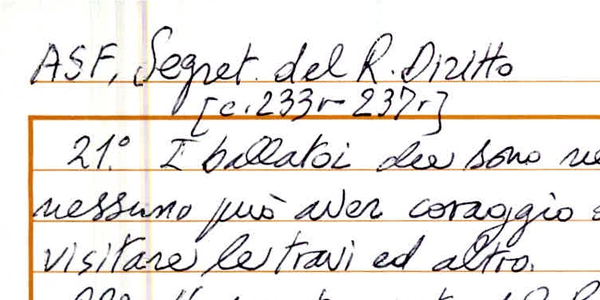 ASF, Segret. del R. Diritto
[c. 233r - 237r]
21.° I ballatoi che sono ne
nessuno può aver coraggio
visitare le travi ed altro.